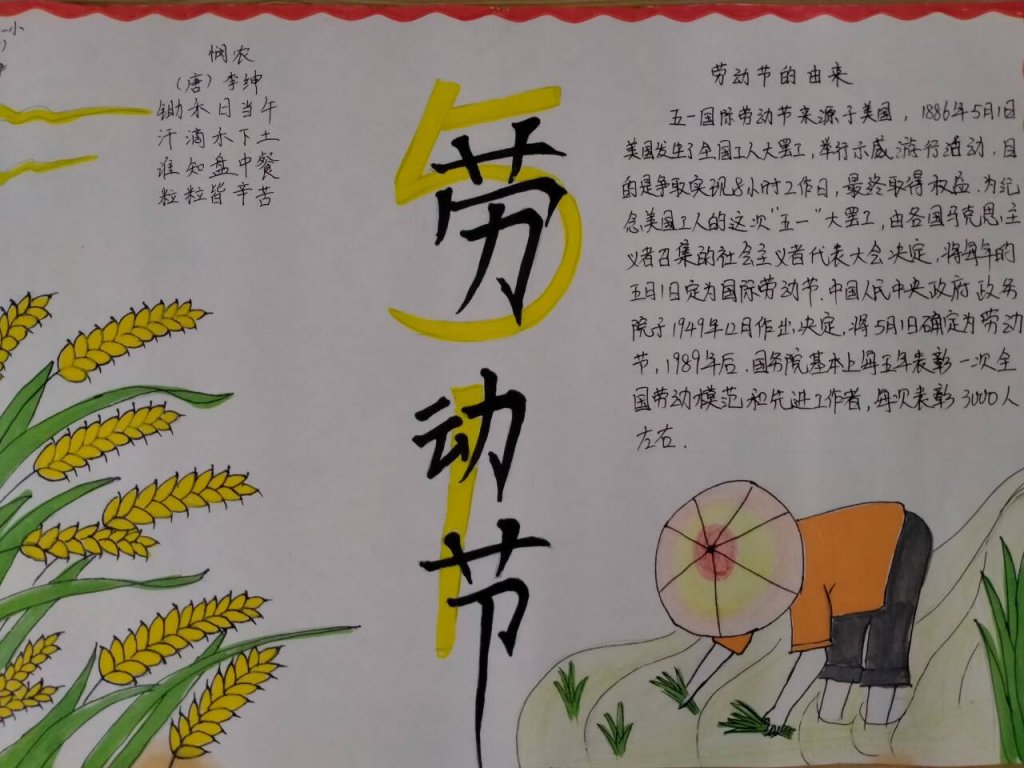 悯农
（唐）李绅
锄禾日当午
汗滴禾下土
谁知盘中餐
粒粒皆辛苦
5
1
劳
动
节
劳动节的由来
五一国际劳动节来源于美国，1886年5月1日
美国发生了全国工人大罢工，举行示威游行活动，目
的是争取实现8小时工作日，最终取得权益.为纪
念美国工人的这次"五一"大罢工，由各国马克思主
义者召集的社会主义者代表大会决定，将每年的
五月1日定为国际劳动节.中国人民中央政府政务
院于1949年12月作出决定，将5月1日确定为劳动
节，1989年后，国务院基本上每五年表彰一次全
国劳动模范和先进工作者，每次表彰3000人
左右.